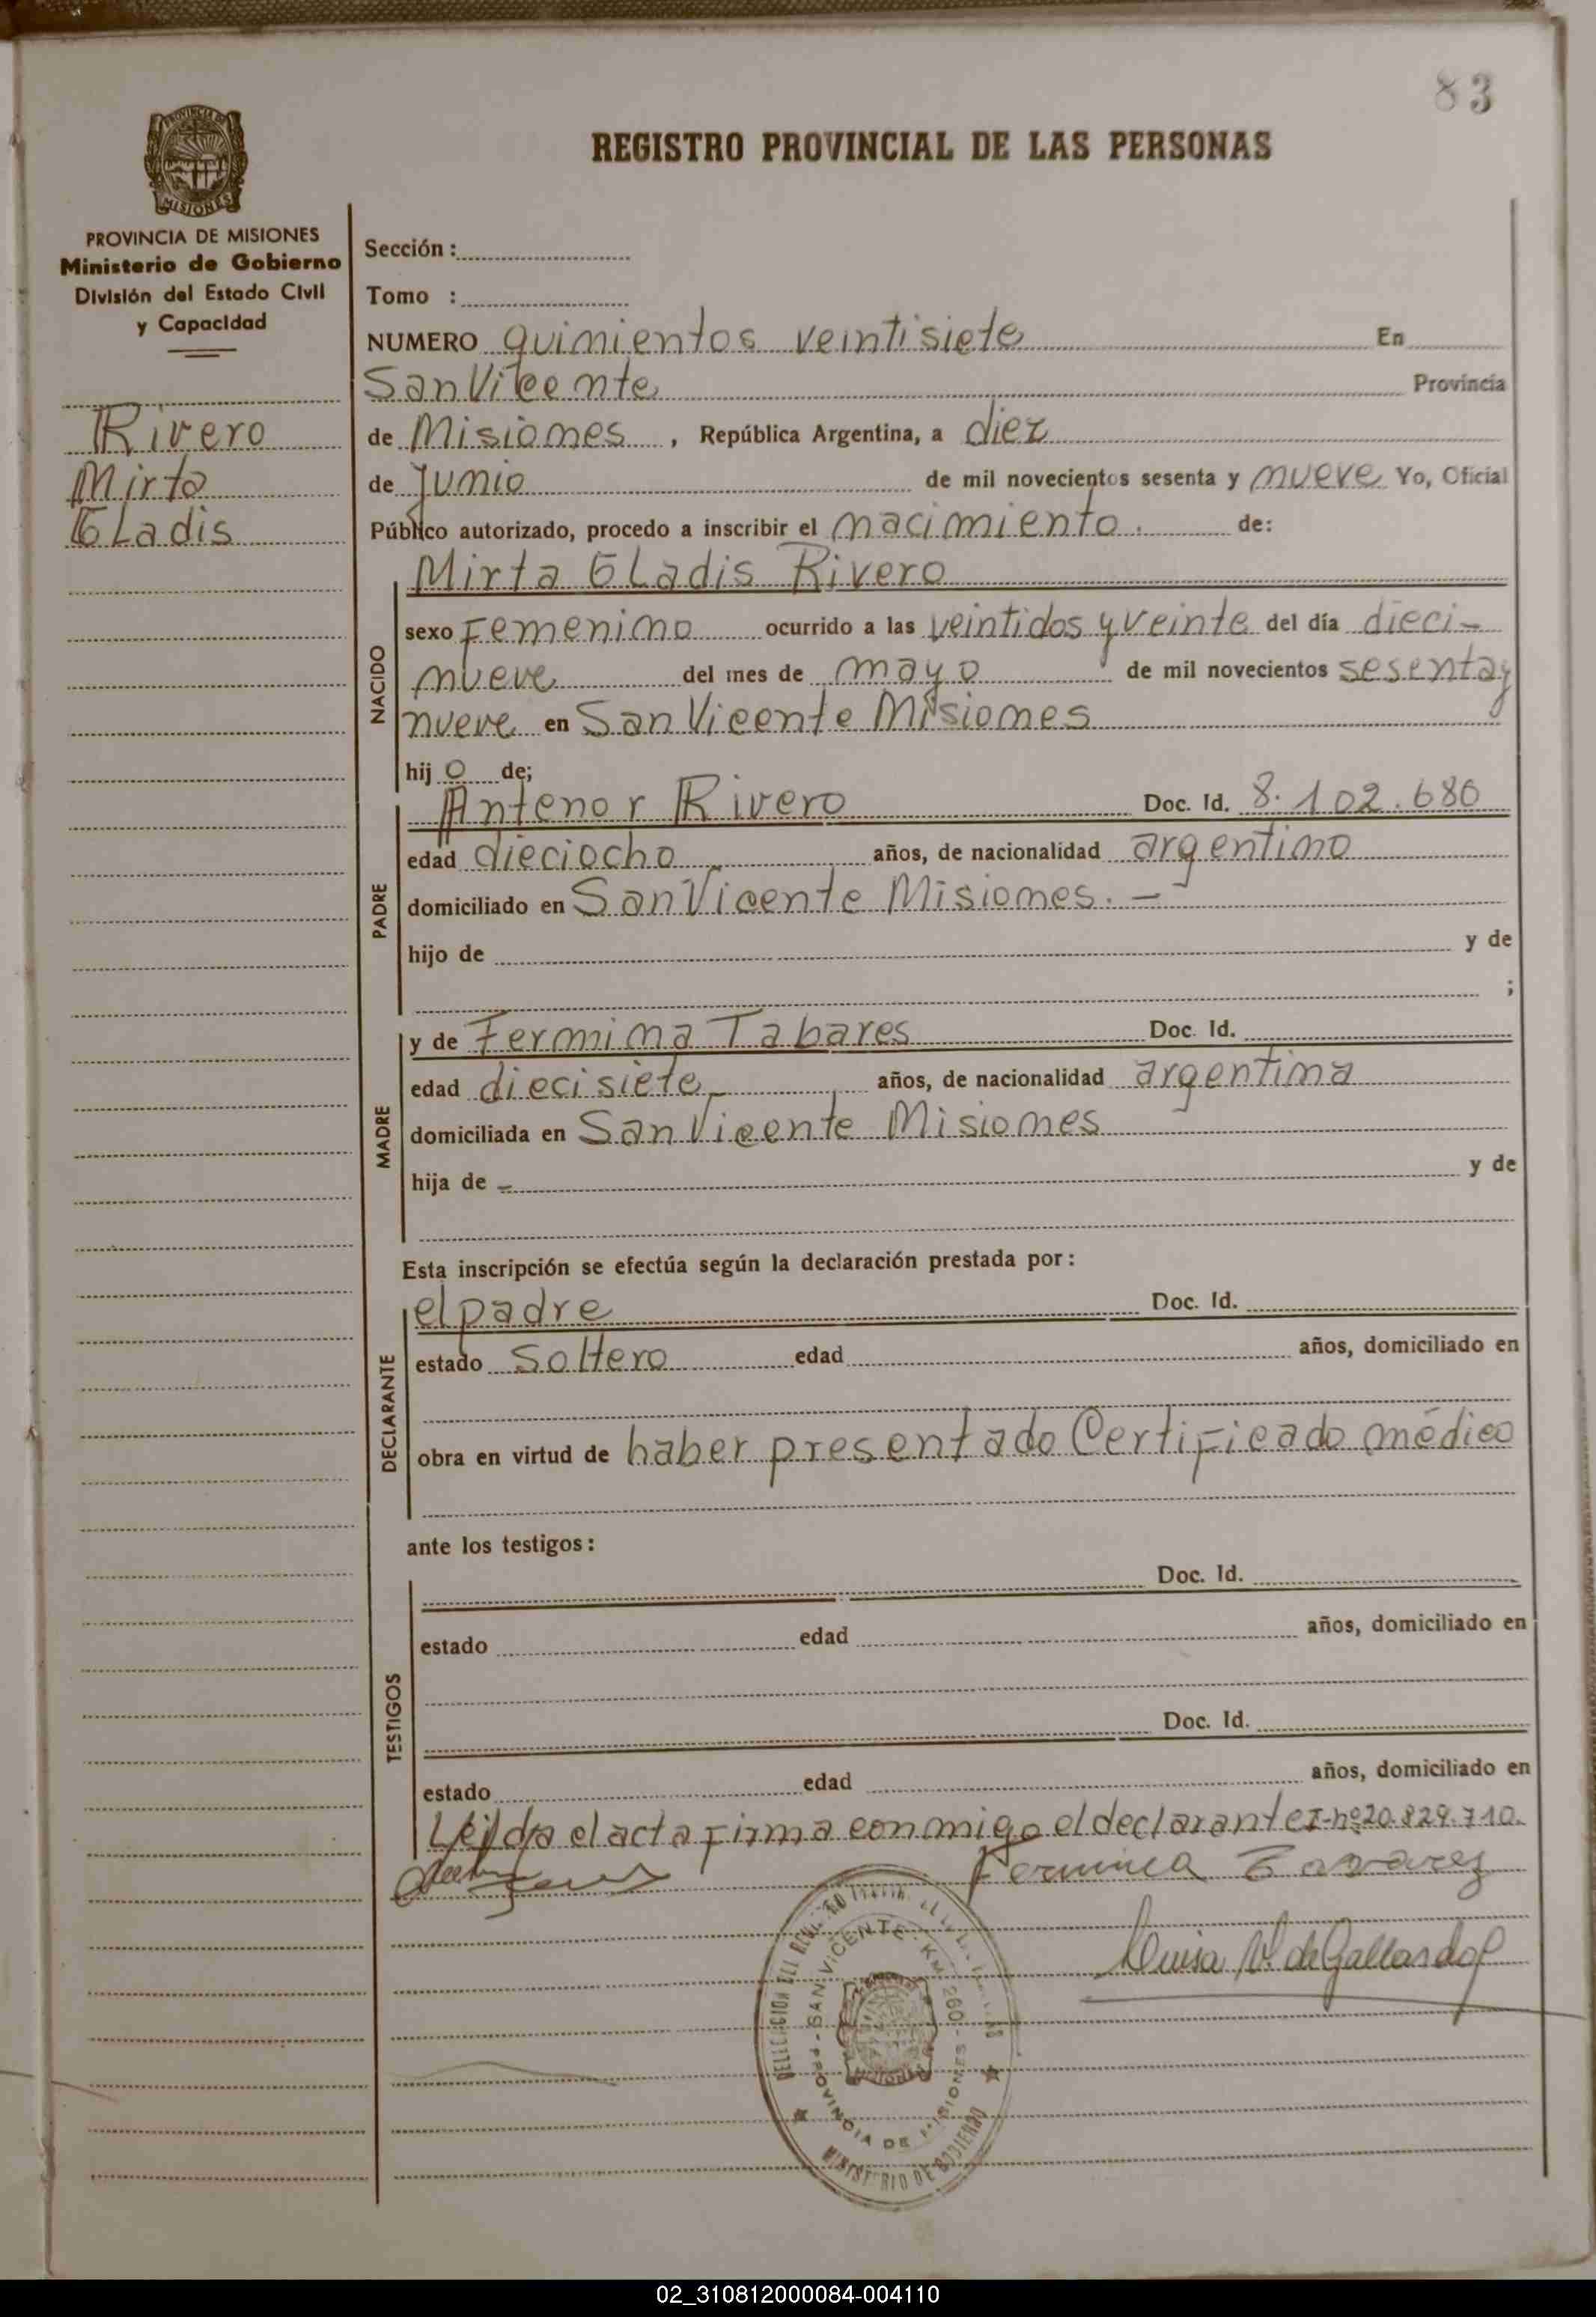 83
REGISTRO PROVINCIAL DE LAS PERSONAS
PROVINCIA DE
MISIONES
PROVINCIA DE MISIONES
Ministerio de Gobierno
División del Estado Civil
y Capacidad
Rivero
Mirta
Gladis
Sección :
Tomo :
NUMERO quinientos veintisiete En
San Vicente Provincia
de Misiones , República Argentina, a diez
de Junio de mil novecientos sesenta y nueve Yo, Oficial
Público autorizado, procedo a inscribir el nacimiento. de:
Mirta Gladis Rivero
NACIDO
sexo Femenino ocurrido a las veintidos y veinte del día dieci-
nueve del mes de mayo de mil novecientos sesenta y
nueve en San Vicente Misiones
hij o de;
PADRE
Antenor Rivero Doc. Id. 8.102.680
edad dieciocho años, de nacionalidad argentino
domiciliado en San Vicente Misiones. -
hijo de y de
;
MADRE
y de Fermina Tabares Doc. Id.
edad diecisiete años, de nacionalidad argentina
domiciliada en San Vicente Misiones
hija de - y de
Esta inscripción se efectúa según la declaración prestada por :
DECLARANTE
el padre Doc. Id.
estado Soltero edad años, domiciliado en
obra en virtud de haber presentado Certificado médico
ante los testigos :
TESTIGOS
Doc. Id.
estado edad años, domiciliado en
Doc. Id.
estado edad años, domiciliado en
Leida el acta firma conmigo el declarante I-nº20.829.710.
Fermina Tavarez
Luisa V. de Gallardo
DELEGACION DEL
SAN VICENTE - KM 260 -
PROVINCIA DE MISIONES
MINISTERIO DE GOBIERNO
02_310812000084-004110